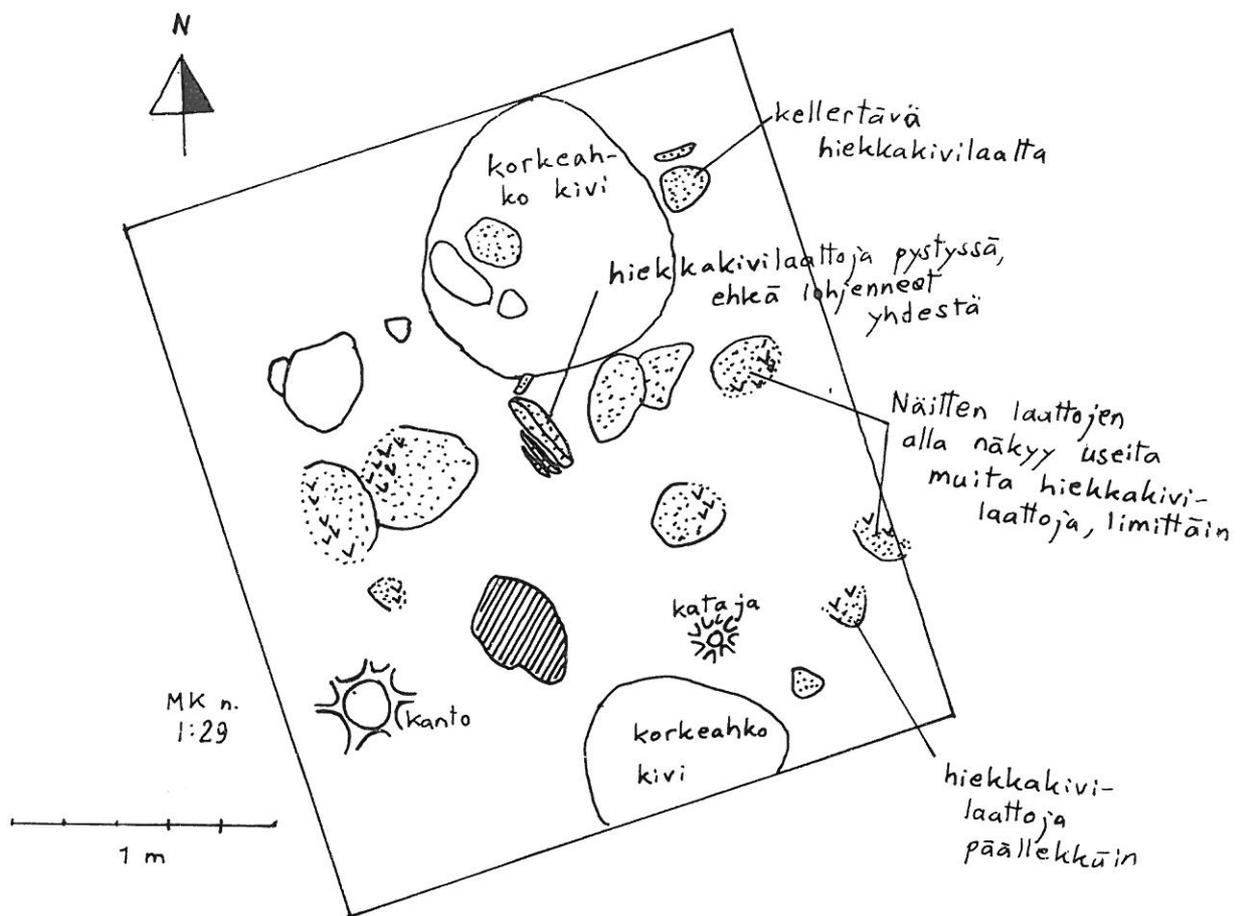 N
kellertävä
hiekkakivilaatta
korkeah-
ko kivi
hiekkakivilaattoja pystyssä,
ehkä lohjenneet
yhdestä
Näitten laattojen
alla näkyy useita
muita hiekkakivi-
laattoja, limittäin
kataja
MK n.
1:29
kanto
korkeahko
kivi
hiekkakivi-
laattoja
päällekkäin
1 m